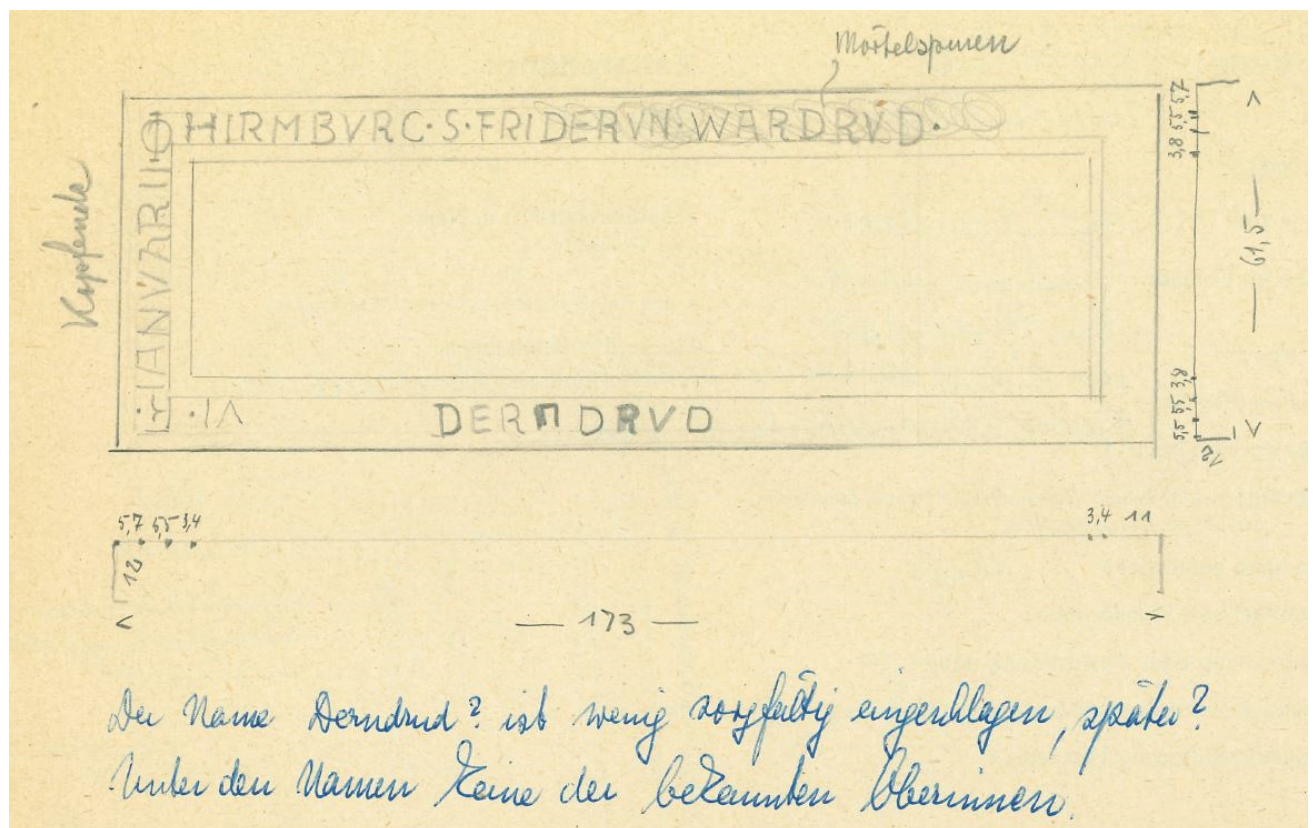 Mörtelspuren
HIRMBVRC·S·FRIDERVN·WARDRVD·
Kopfende
IANVARII·
DERNDRVD
5,7
5,5
3,8
61,5
3,8
5,5
5,5
12
5,7 5,5 3,4
3,4 11
12
— 173 —
Der Name Derndrud? ist wenig sorgfältig eingeschlagen, später?
Unter den Namen keine der bekannten Oberinnen.